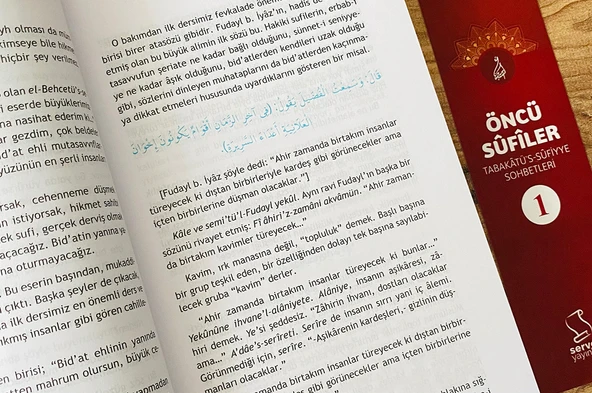 yh olması da mü
kimseye bile hikme
hiçbir şey verilme
olan el-Behcetü's-s
i eserde büyüklerimi
na nasihat ederim k
ar gezdim, çok beldele
d'at ehli mutasavvıfla
yüzünün en şerli insanlar
rsan, cehenneme düşme
n istiyorsak, hikmet sahib
ek sufi, gerçek derviş olma
açacağız. Bid'atin yanına ye
a oturmayacağız.
Bu eserin başından, mukadd
çıktı. Başka şeyler de çıkacak,
a ilk dersimiz en önemli ders ve
kmış insanlar gibi gören cahille
en birisi; “Bid'at ehlinin yanında
etten mahrum olursun, büyük ce-
yapmadan
O bakımdan ilk dersimiz fevkalade önemli.
birisi birer atasözü gibidir. Fudayl b. İyâz'ın, hadis de
etmiş olan bu büyük alimin ilk sözü bu. Hakiki sufilerin, erbab-ı
tasavvufun şeriate ne kadar bağlı olduğunu, sünnet-i seniyye-
ye ne kadar âşık olduğunu, bid'atlerden kendileri uzak olduğu
gibi, sözlerini dinleyen muhataplarını da bid'atlerden kaçınma-
ya dikkat etmeleri hususunda uyardıklarını gösteren bir misal.
قَالَ: وَسَمِعْتُ الْفُضَيْلَ يَقُولُ: (فِي آخِرِ الزَّمَانِ أَقْوَامٌ يَكُونُونَ إِخْوَانَ
الْعَلَانِيَةِ أَعْدَاءَ السَّرِيرَةِ).
[Fudayl b. İyâz şöyle dedi: “Ahir zamanda birtakım insanlar
türeyecek ki dıştan birbirleriyle kardeş gibi görünecekler ama
içten birbirlerine düşman olacaklar.”]
Kâle ve semi'tü'l-Fudayl yekûl. Aynı ravi Fudayl'ın başka bir
sözünü rivayet etmiş: Fî âhiri'z-zamâni akvâmün. “Ahir zaman-
da birtakım kavimler türeyecek...”
Kavim, ırk manasına değil, “topluluk” demek. Başlı başına
bir grup teşkil eden, bir özelliğinden dolayı tek başına sayılabi-
lecek gruba “kavim” derler.
“Ahir zamanda birtakım insanlar türeyecek ki bunlar...”
Yekûnûne ihvane'l-alâniyete. Alâniye, insanın aşikâresi, zâ-
hiri demek. Ye'si şeddesiz. “Zâhirin ihvanı, dostları olacaklar
ama...” A'dâe's-serîreti. Serîre de insanın sırrı yani iç âlemi.
Görünmediği için, serîre. “Aşikârenin kardeşleri,- gizlinin düş-
manları olacaklar.”
zamanda birtakım insanlar türeyecek ki dıştan birbir-
gibi görünecekler ama içten birbirlerine
ÖNCÜ
SÛFÎLER
TABAKÂTÜ'S-SÛFİYYE
SOHBETLERİ
1
serve
yayın